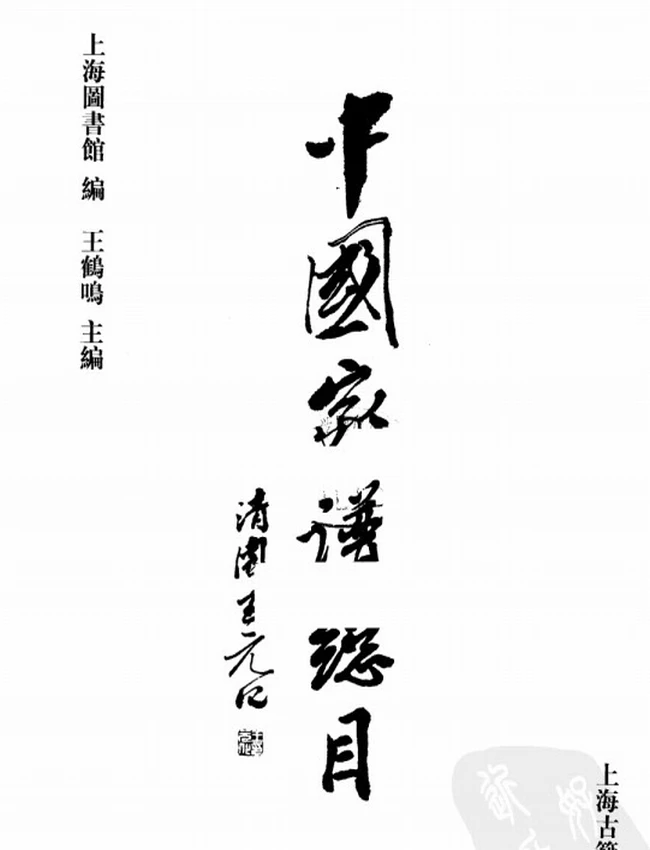 上海古
中國家譜總目
清園王元化
上海圖書館 編 王鶴鳴 主編